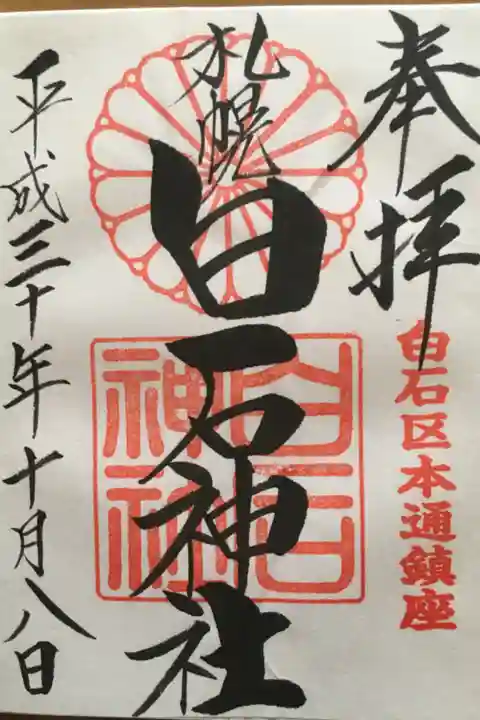 奉拝
白石区本通鎮座
札幌
白石神社
白石神社
平成三十年十月八日